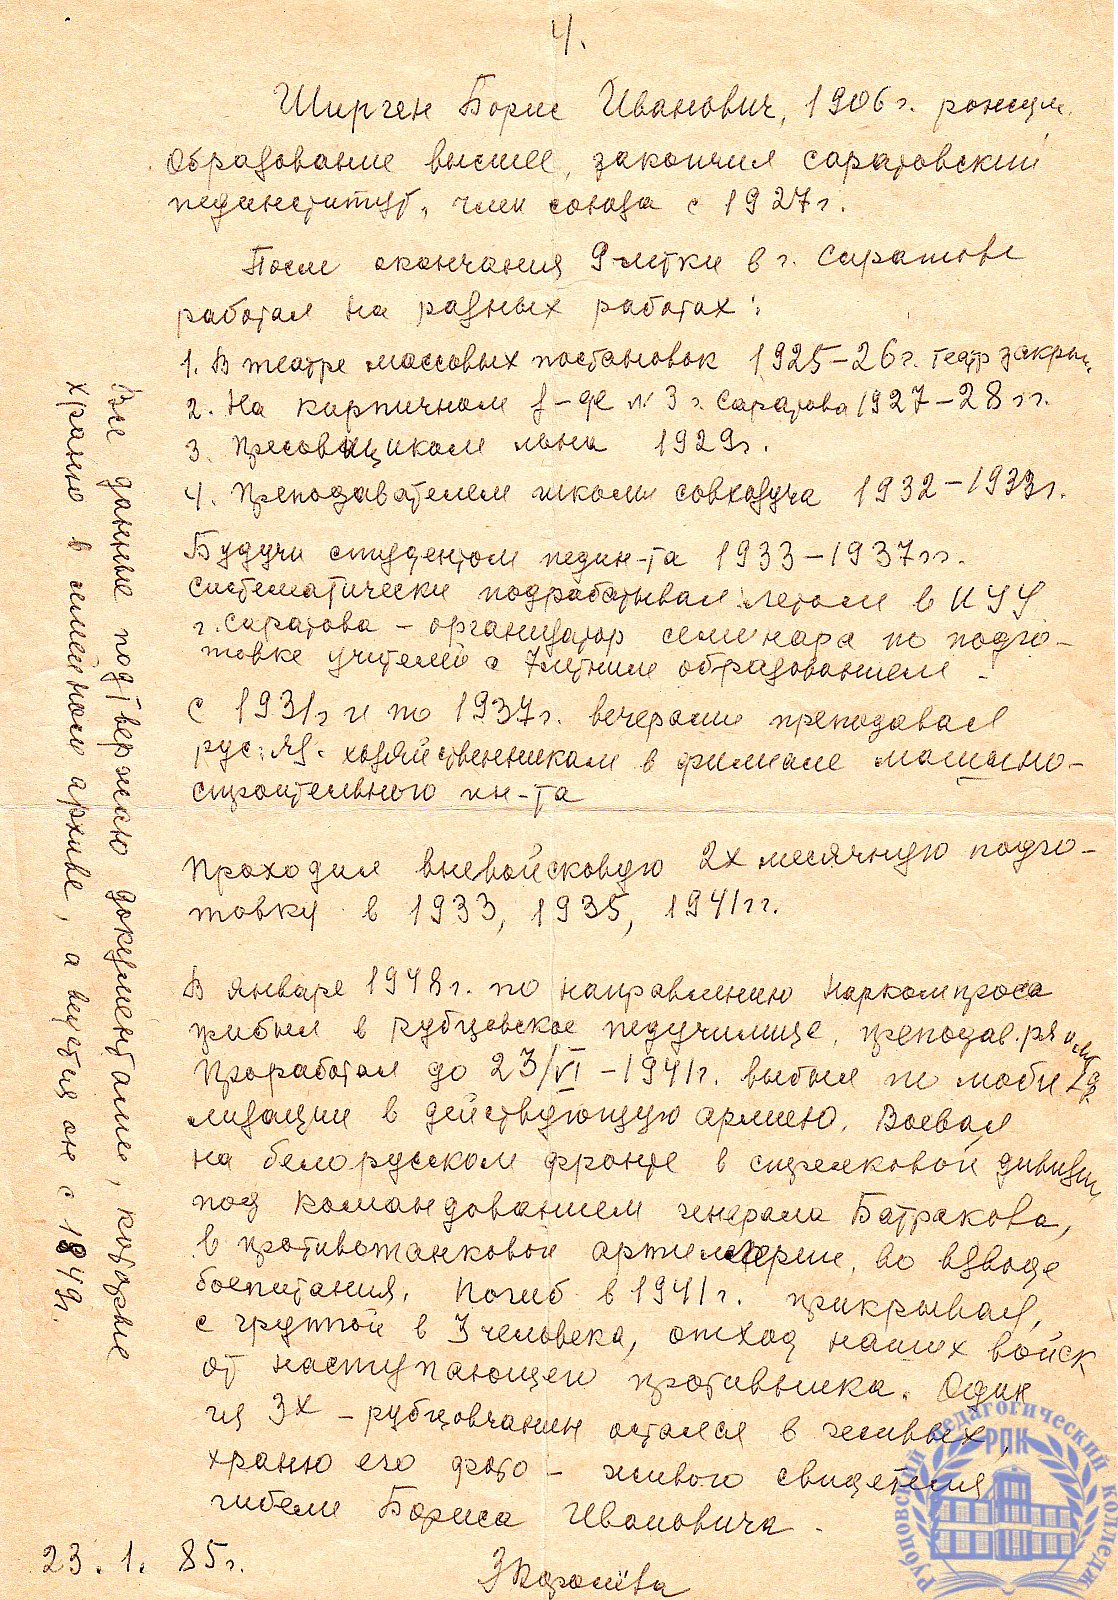 4.
Ширген Борис Иванович, 1906 г. рожден.
Образование высшее, закончил саратовский
пединститут, член союза с 1927 г.
После окончания 9-летки в г. Саратове
работал на разных работах:
1. В театре массовых постановок 1925-26 г. театр закры
2. На кирпичном з-де № 3 г. Саратова 1927-28 гг.
3. Пресовщиком льна 1929 г.
4. Преподавателем школы совхозуча 1932-1933 г.
Будучи студентом педин-та 1933-1937 гг.
систематически подрабатывал летом в ИУУ
г. Саратова - организатор семинара по подго-
товке учителей с 7 летним образованием
с 1931 г и по 1937 г. вечерами преподавал
рус. яз. хозяйственникам в филиале машино-
строительного ин-та
Проходил вневойсковую 2х месячную подго-
товку в 1933, 1935, 1941 гг.
В январе 1948 г. по направлению Наркомпроса
прибыл в Рубцовское педучилище, преподав. ря и лит
Проработал до 23/VI-1941 г. выбыл по моби
лизации в действующую армию. Воевал
на белорусском фронте в стрелковой дивизии,
под командованием генерала Батракова,
в противотанковой артиллерии, во взводе
боепитания. Погиб в 1941 г. прикрывая,
с группой в 3 человека, отход наших войск
от наступающего противника. Один
из 3х - рубцовчанин остался в живых,
храню его фото - живого свидетеля
гибели Бориса Ивановича.
23. 1. 85 г.
ЗКоролёва
Все данные подтверждаю документами, которые
храню в личном архиве, а ведется он с 1949 г.
Рубцовский педагогический колледж
РПК